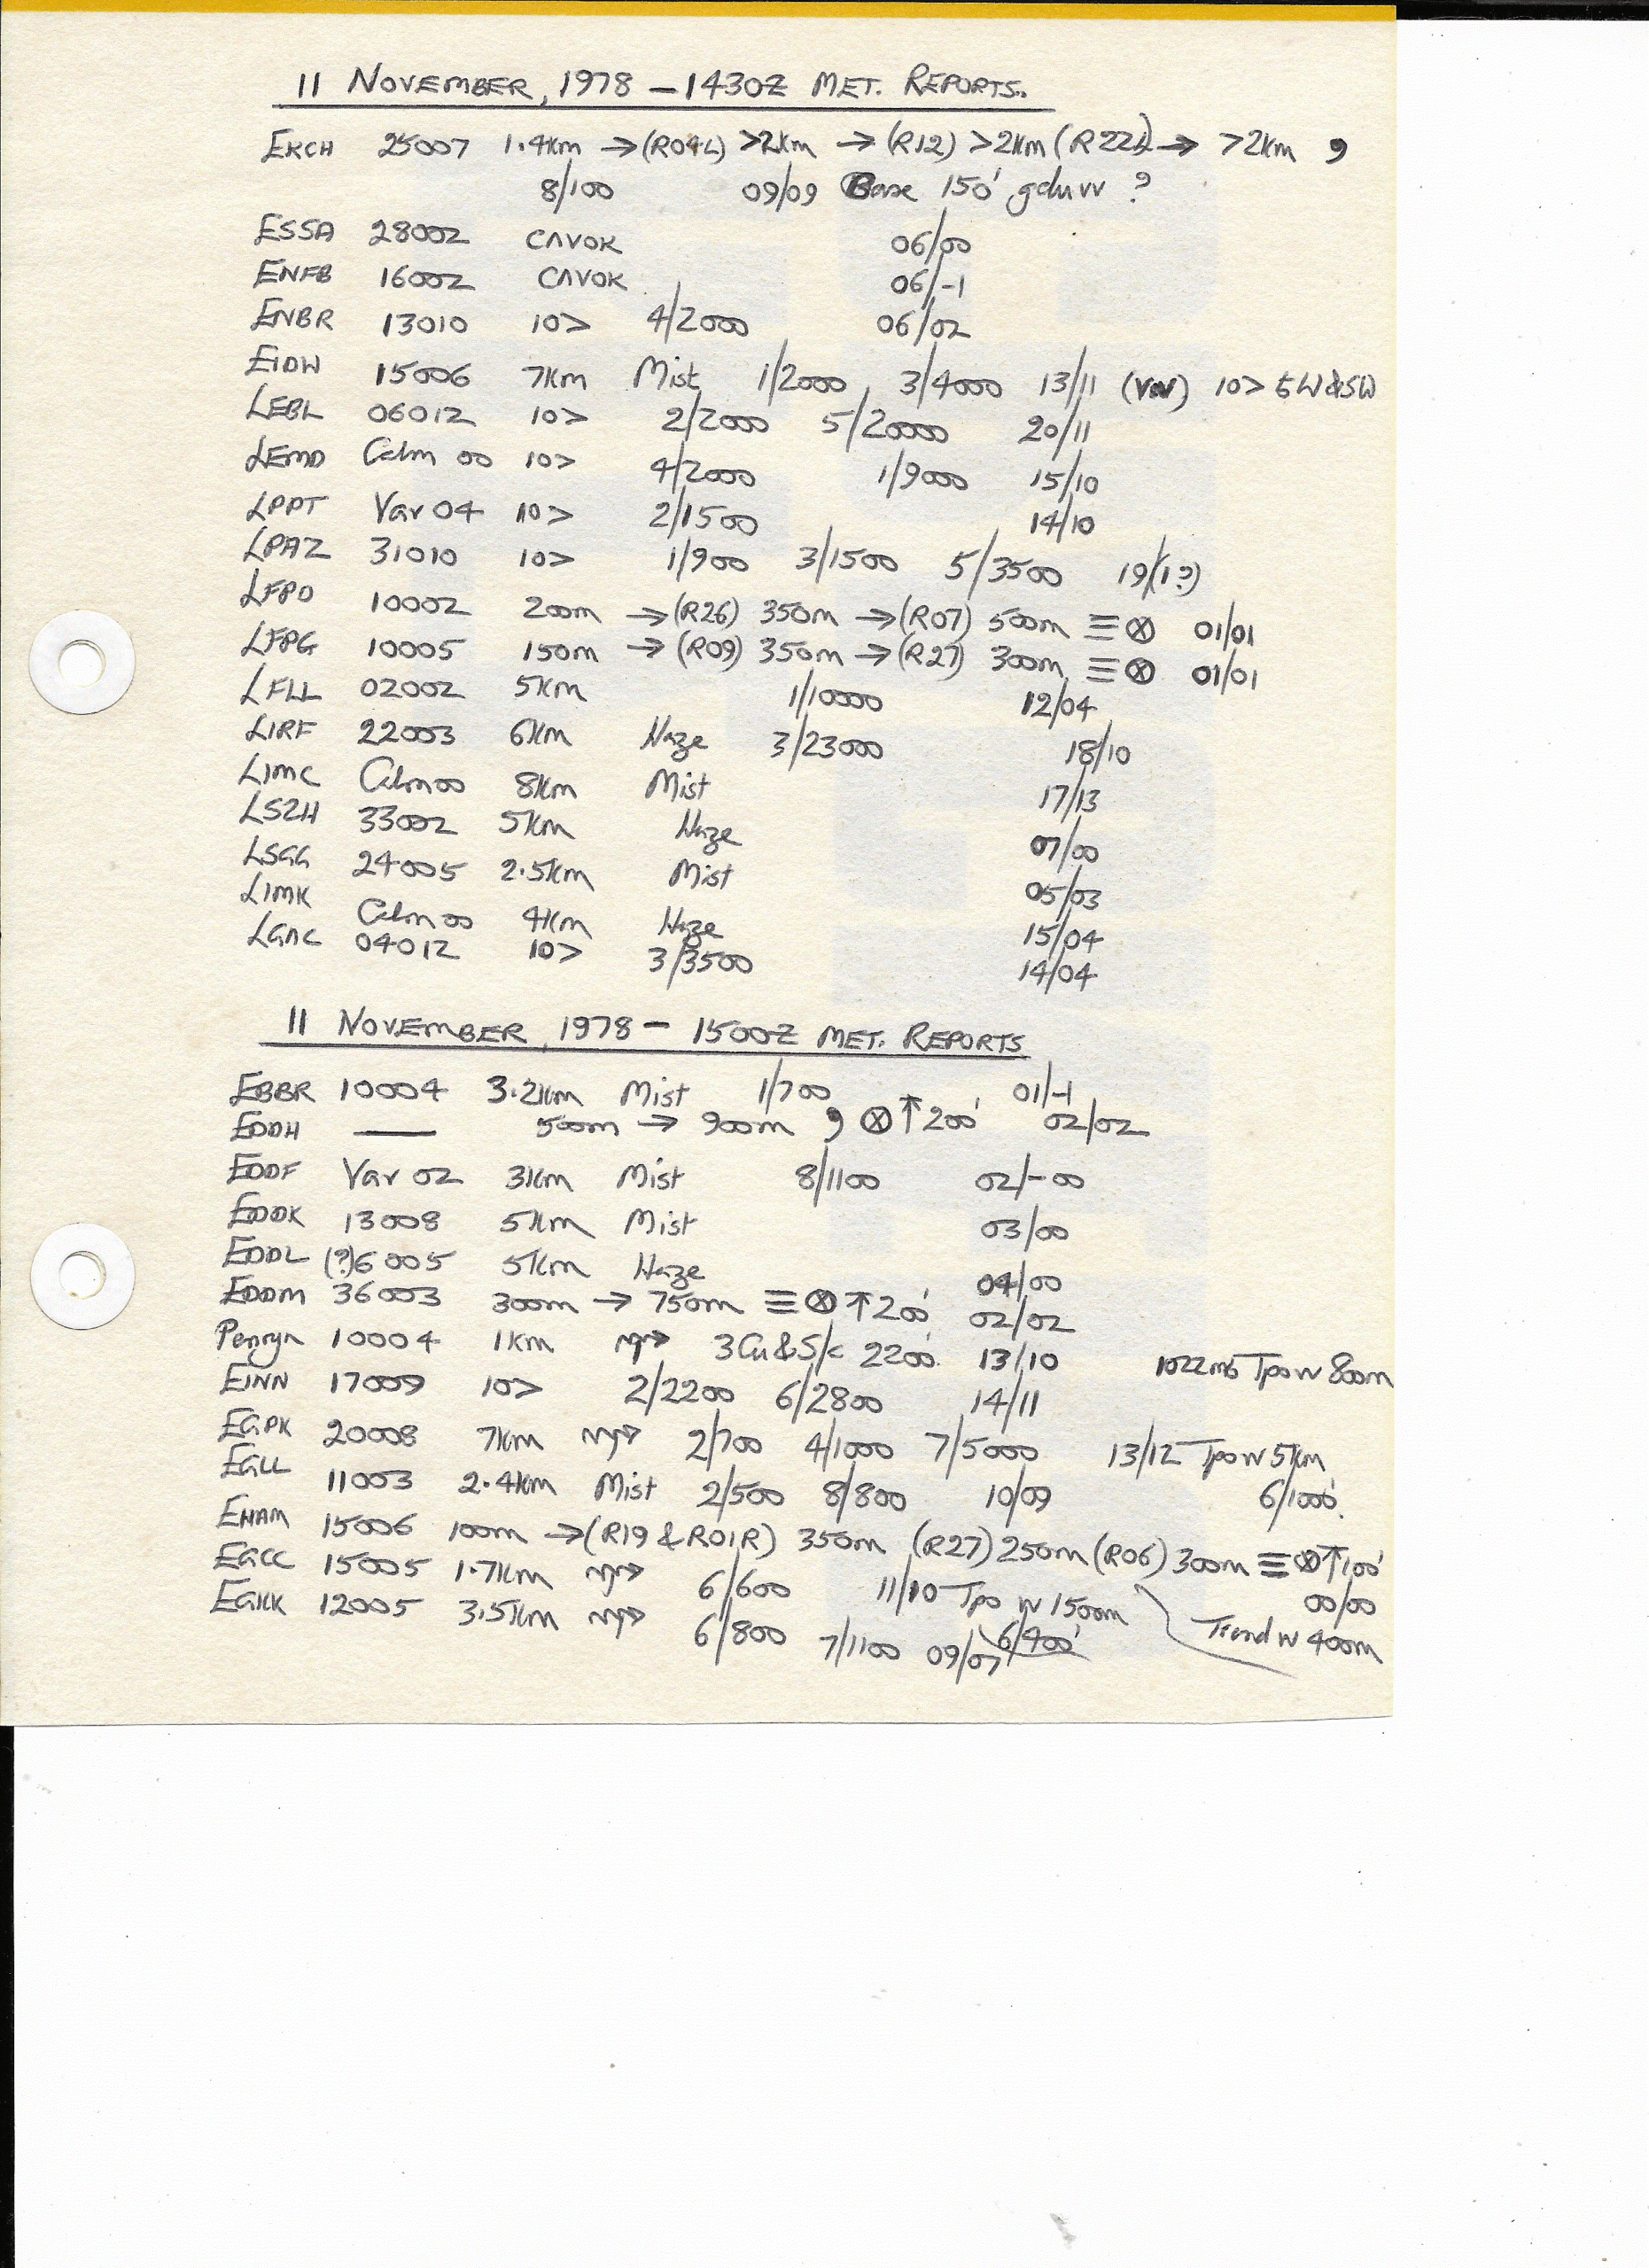 11 NOVEMBER, 1978 - 1430Z MET. REPORTS.
EKCH 25007 1.4km → (R04L) >2km → (R12) >2km (R22L) → >2km ,
8/100 09/09 Base 150' gduvv ?
ESSA 28002 CAVOK 06/00
ENFB 16002 CAVOK 06/-1
ENBR 13010 10> 4/2000 06/02
EIDW 15006 7km Mist 1/2000, 3/4000 13/11 (Var) 10> SW
LEBL 06012 10> 2/2000 5/20000 20/11
LEMD Calm 00 10> 4/2000 1/9000 15/10
LPPT Var 04 10> 2/1500 14/10
LPAZ 31010 10> 1/900 3/1500 5/3500 19/(1?)
LFPO 10002 200m → (R26) 350m → (R07) 500m ≡ ⊗ 01/01
LFPG 10005 150m → (R09) 350m → (R27) 300m ≡ ⊗ 01/01
LFLL 02002 5km 1/10000 12/04
LIRF 22003 6km Haze 3/23000 18/10
LIMC Calm 00 8km Mist 17/13
LSZH 33002 5km Haze 07/00
LSGG 24005 2.5km Mist 05/03
LIMK Calm 00 4km Haze 15/04
LGAC 04012 10> 3/3500 14/04
11 NOVEMBER, 1978 - 1500Z MET. REPORTS
EBBR 10004 3.2km Mist 1/700 01/-1
EDDH — 500m → 900m , ⊗ ↑ 200' 02/02
EDDF Var 02 3km Mist 8/1100 02/-00
EDDK 13008 5km Mist 03/00
EDDL (?)6005 5km Haze 04/00
EDDM 36003 300m → 750m ≡ ⊗ ↑ 200' 02/02
Penryn 10004 1km 3Cu&S/c 2200' 13/10 1022mb Tpo w 800m
EINN 17009 10> 2/2200 6/2800 14/11
EGPK 20008 7km 2/700 4/1000 7/5000 13/12 Tpo w 5km
EGLL 11003 2.4km Mist 2/500 8/800 10/09 6/1000'
EHAM 15006 100m → (R19 & R01R) 350m (R27) 250m (R06) 300m ≡ ⊗ ↑ 100'
EGCC 15005 1.7km 6/600 11/10 Tpo w 1500m 00/00
EGKK 12005 3.5km 6/800 7/1100 09/07 6/400' Trend w 400m